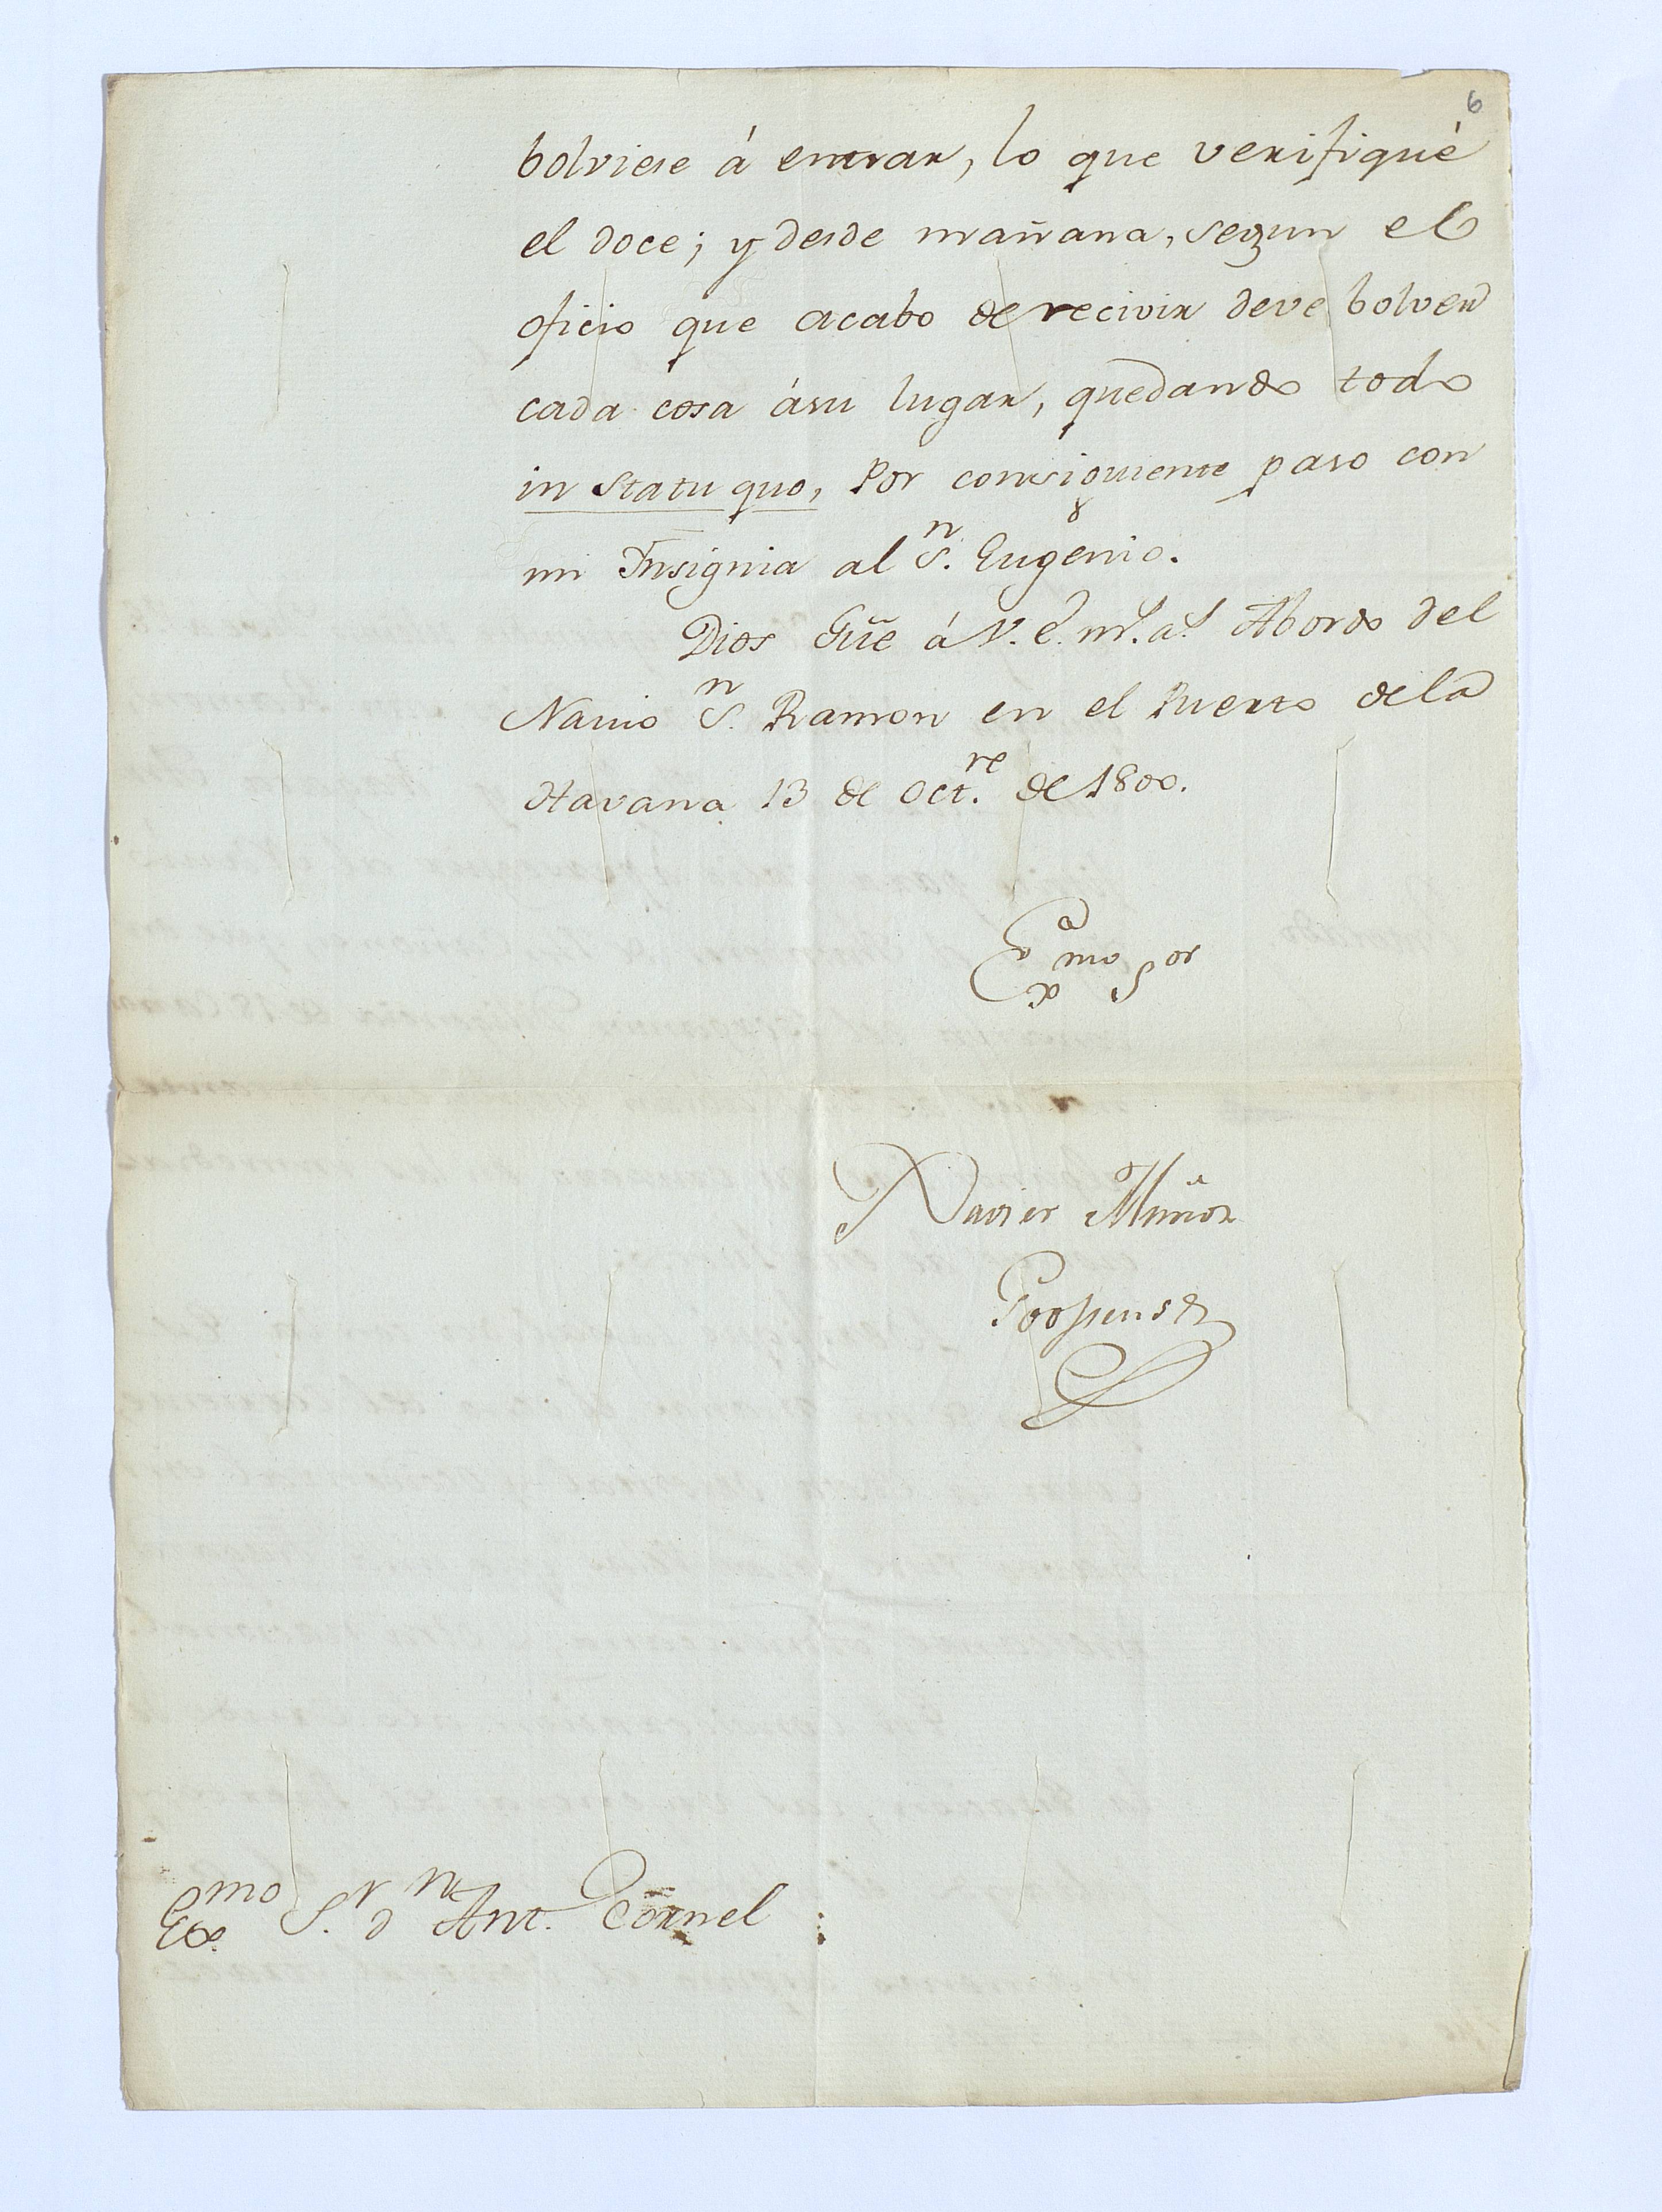 6
bolviese á entrar, lo que verifiqué
el doce; y desde mañana, segun el
oficio que acabo de recivir deve bolver
cada cosa ásu lugar, quedando todo
in statu quo, Por consiguiente paso con
mi Insignia al Sn. Eugenio.
Dios Gũe á V. E. ms. as. Abordo del
Navio Sn. Ramon en el Puerto dela
Havana 13 de Octre. de 1800.
Exmo Sor
Xavier Muñoz
Goossens
Exmo. Sr. Dn Ant. Cornel